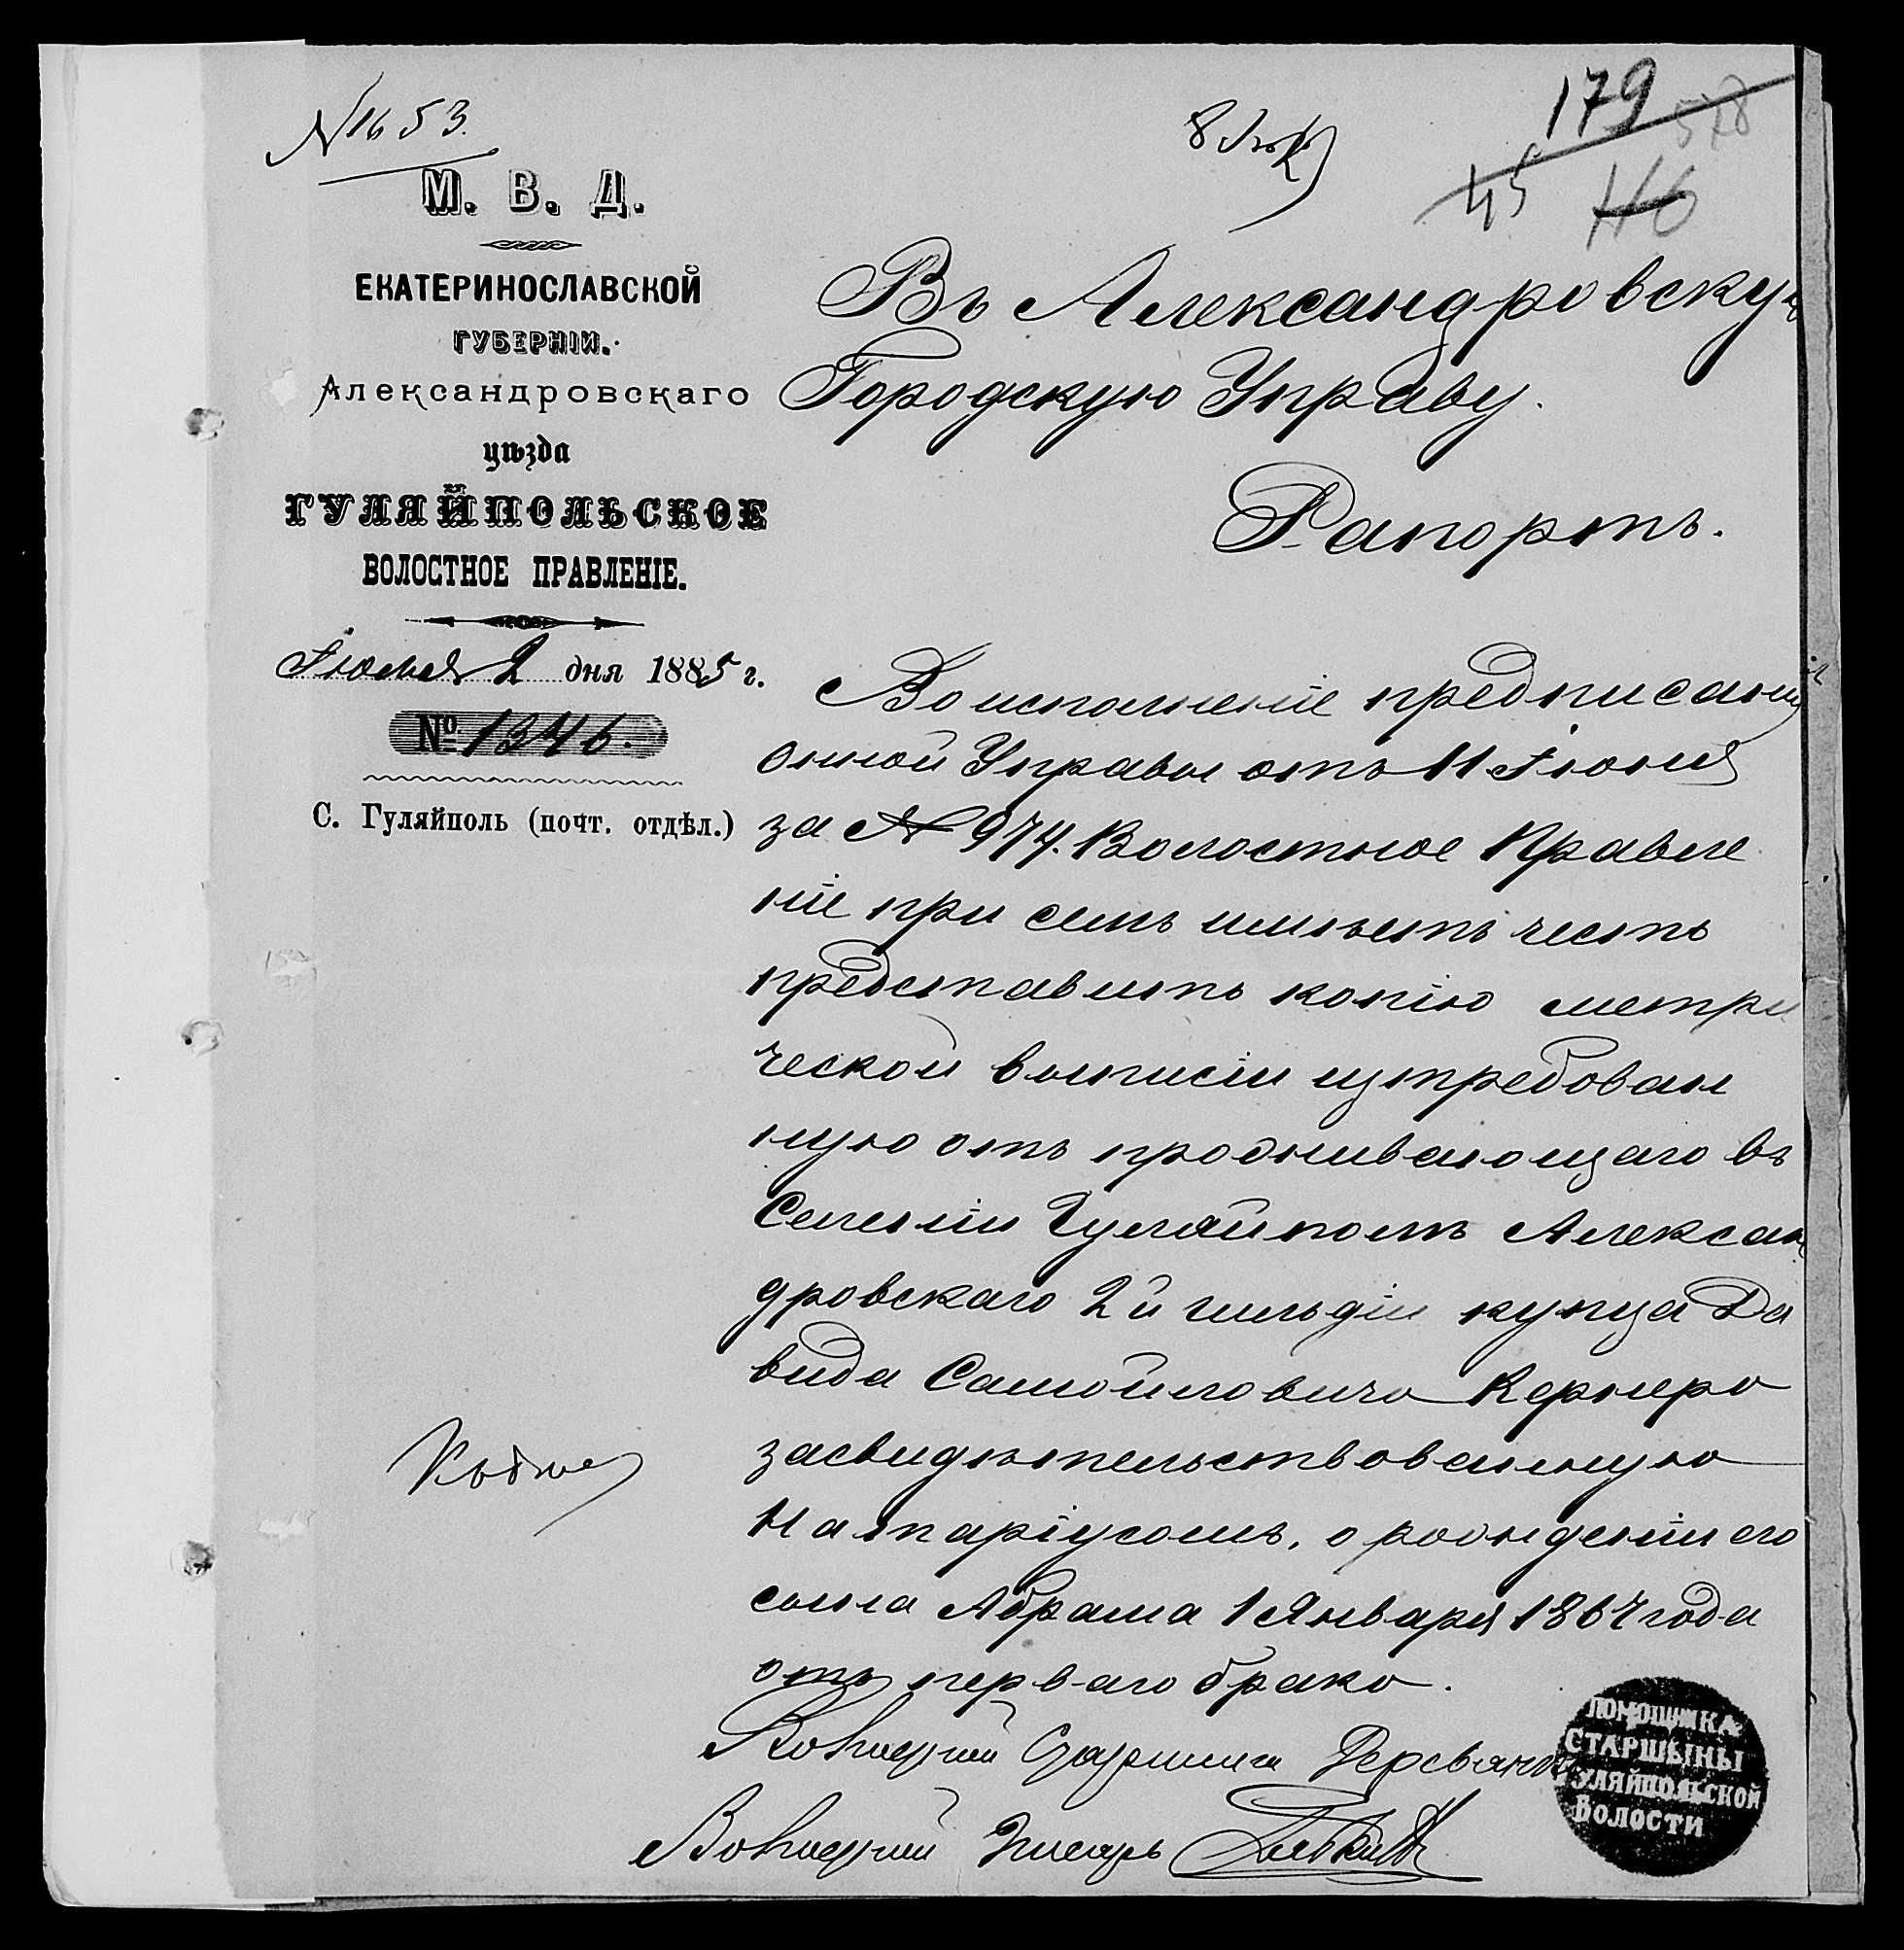 № 1653.
179
578
45
116
М. В. Д.
ЕКАТЕРИНОСЛАВСКОЙ
ГУБЕРНІИ.
Александровскаго
уѣзда
ГУЛЯЙПОЛЬСКОЕ
ВОЛОСТНОЕ ПРАВЛЕНІЕ.
Іюля 2 дня 1885 г.
№ 1346.
С. Гуляйполь (почт. отдѣл.)
Въ Александровскую
Городскую Управу.
Рапортъ.
Во исполненіе предписанія
онной Управы отъ 11 Іюня
за № 974. Волостное Правле
ніе при семъ имѣетъ честь
представить копію метри
ческой выписіи изтребован
ную отъ проживающаго въ
Селеніи Гуляйполѣ Алексан
дровскаго 2й гильдіи купца Да
вида Самойловича Кернера
засвидѣтельствованную
Натаріусомъ, о рожденіи его
сына Абрама 1 Января 1867 года
отъ перваго брака.
Волостной Старшина
Волостной Писарь
ПОМОЩНИКА
СТАРШЫНЫ
ГУЛЯЙПОЛЬСКОЙ
ВОЛОСТИ